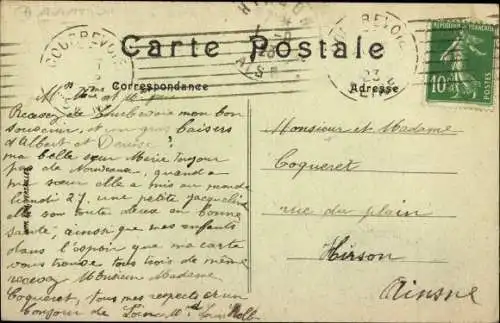 COURBEVOIE
HIRSON
COURBEVOIE
Carte Postale
Correspondance
Adresse
RÉPUBLIQUE FRANÇAISE
10c
POSTES
Mr Mme et
Recevez de Courbevoie mon bon
souvenir, et un gros baisers
d'Albert et Denise
ma belle sœur Marie toujour
pas de Nouveaux, quand a
ma sœur elle a mis au monde
lundi 27, une petite Jacqueline
elle son toute deux en bonne
santé, ainsi que mes enfants
dans l'espoir que ma carte
vous trouve tous trois de même
recevez Monsieur Madame
Coqueret, tous mes respects et un
bonjour de
Monsieur et Madame
Coqueret
rue du plain
Hirson
Ainsne